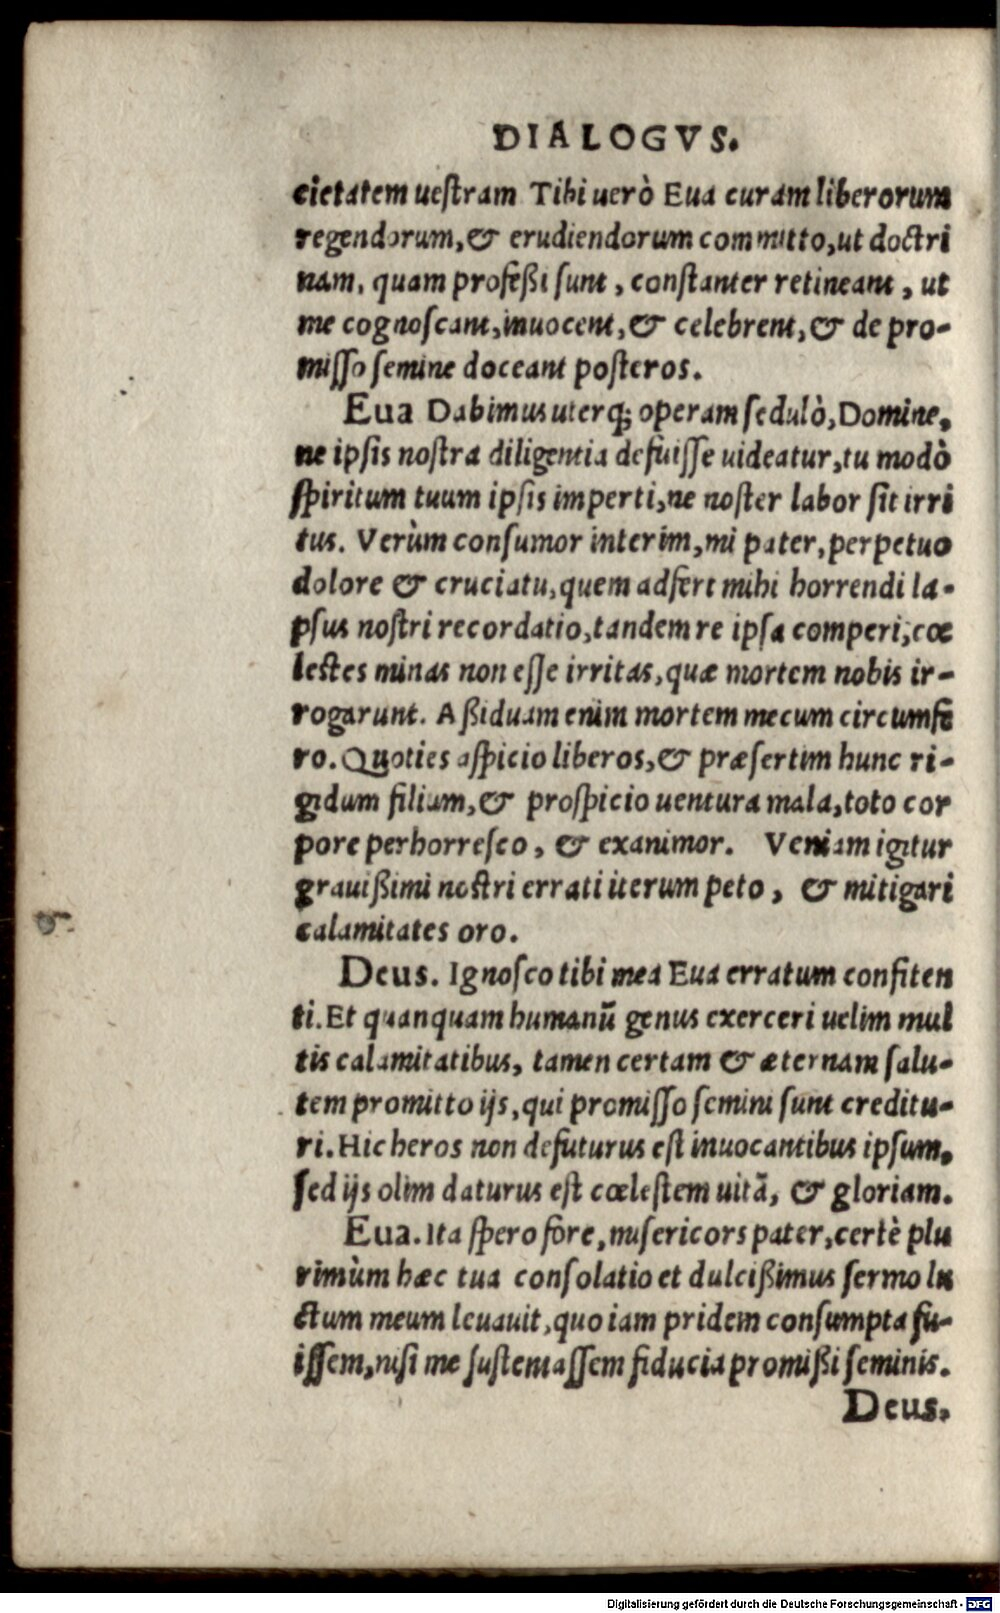 DIALOGVS.
cietatem ueſtram Tibi uerò Eua curam liberorum
regendorum,& erudiendorum committo,ut doctri
nam, quam profeßi ſunt, conſtanter retineant, ut
me cognoſcant,inuocent,& celebrent,& de pro-
miſſo ſemine doceant poſteros.
Eua Dabimus uterq; operam ſedulò,Domine,
ne ipſis noſtra diligentia defuiſſe uideatur,tu modò
ſpiritum tuum ipſis imperti,ne noſter labor ſit irri
tus. Verùm conſumor interim,mi pater,perpetuo
dolore & cruciatu,quem adfert mihi horrendi la-
pſus noſtri recordatio,tandem re ipſa comperi,cœ
leſtes minas non eſſe irritas,quæ mortem nobis ir-
rogarunt. Aßiduam enim mortem mecum circumfe
ro. Quoties aſpicio liberos,& præſertim hunc ri-
gidum filium,& proſpicio uentura mala,toto cor
pore perhorreſco, & exanimor. Veniam igitur
grauißimi noſtri errati iterum peto, & mitigari
calamitates oro.
Deus. Ignoſco tibi mea Eua erratum confiten
ti. Et quanquam humanũ genus exerceri uelim mul
tis calamitatibus, tamen certam & æternam ſalu-
tem promitto ijs,qui promiſſo ſemini ſunt creditu-
ri. Hic heros non defuturus eſt inuocantibus ipſum,
ſed ijs olim daturus eſt cœleſtem uitã, & gloriam.
Eua. Ita ſpero fore,miſericors pater,certè plu
rimùm hæc tua conſolatio et dulcißimus ſermo lu
ctum meum leuauit,quo iam pridem conſumpta fu-
iſſem,niſi me ſuſtentaſſem fiducia promißi ſeminis.
Deus.
Digitalisierung gefördert durch die Deutsche Forschungsgemeinschaft - DFG